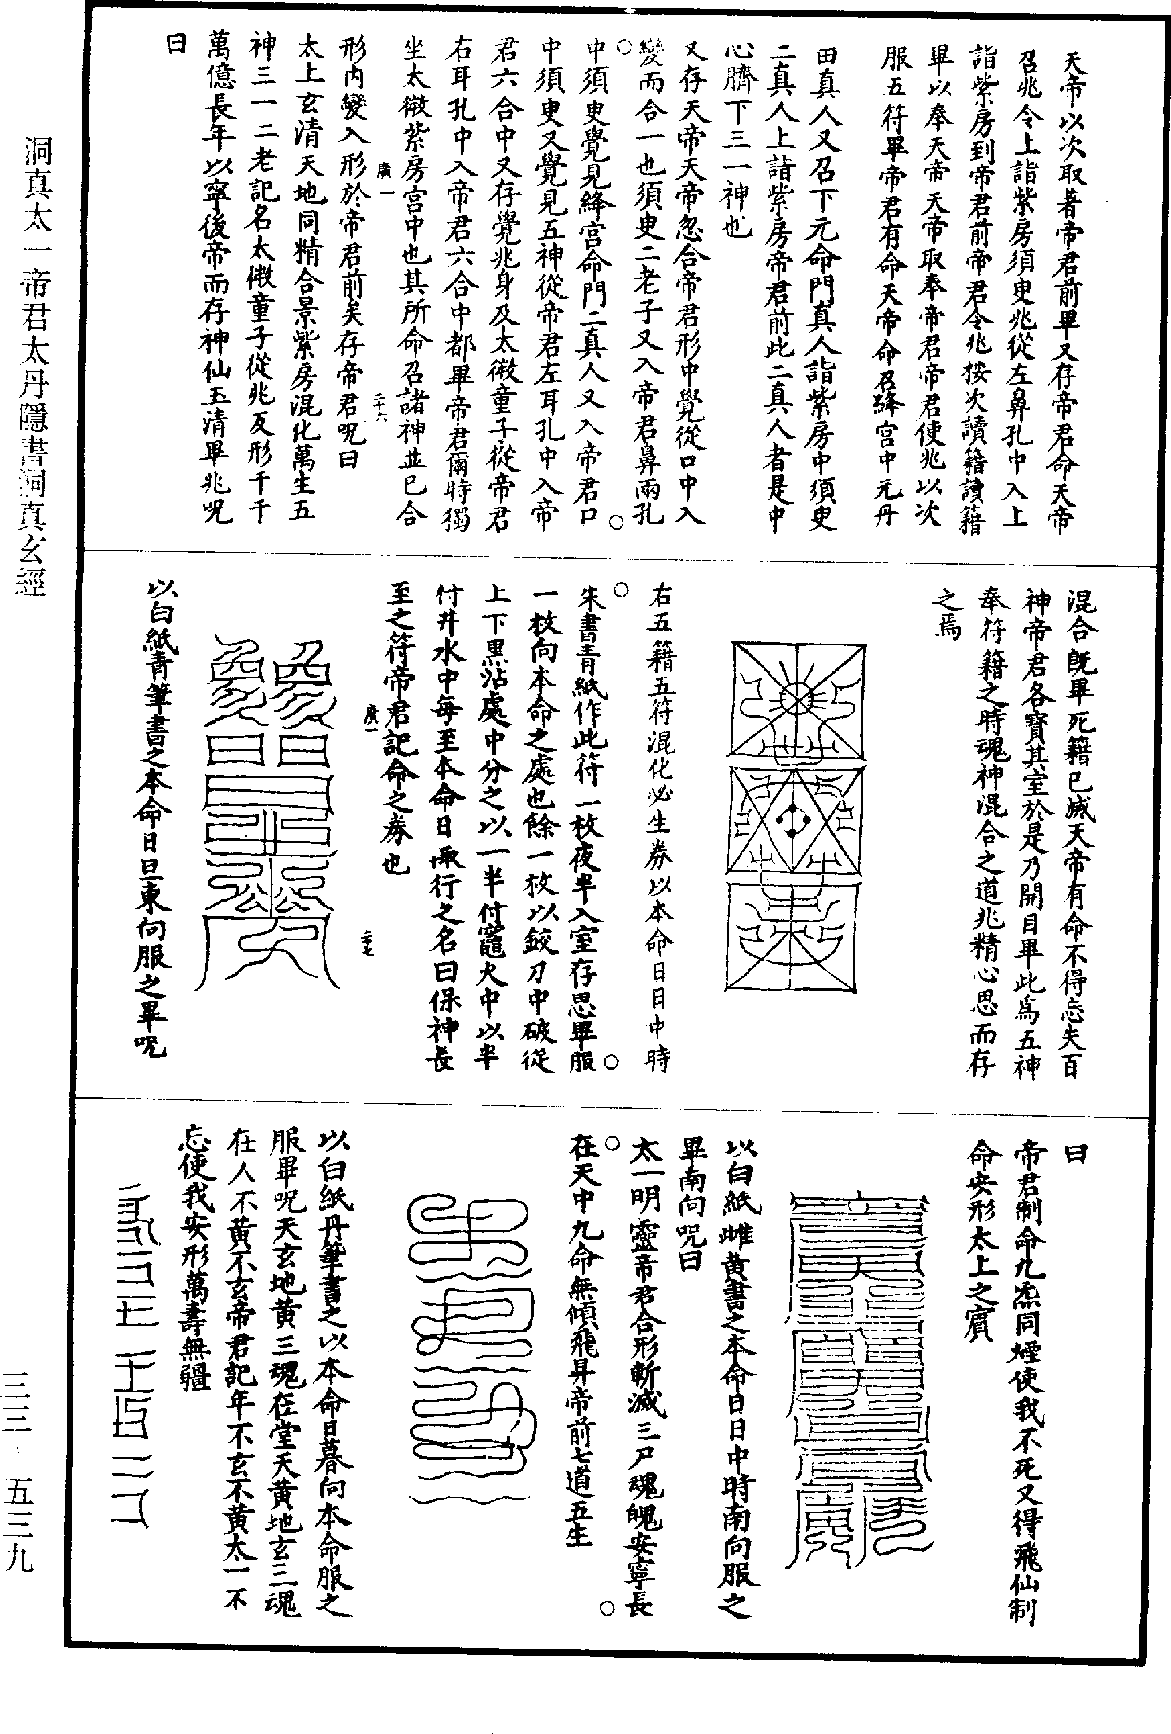 天帝以次取著帝君前畢又存帝君命天帝
召兆令上詣紫房須臾兆從左鼻孔中入上
詣紫房到帝君前帝君令兆按次讀籍讀籍
畢以奉天帝天帝取奉帝君帝君使兆以次
服五符畢帝君有命天帝命召絳宮中元丹
田真人又召下元命門真人詣紫房中須臾
二真人上詣紫房帝君前此二真人者是中
心臍下三一神也
又存天帝天帝忽合帝君形中覺從口中入
變而合一也須臾二老子又入帝君鼻兩孔
中須臾覺見絳宮命門二真人又入帝君口
中須臾又覺見五神從帝君左耳孔中入帝
君六合中又存覺兆身及太微童子從帝君
右耳孔中入帝君六合中都畢帝君爾時獨
坐太微紫房宮中也其所命召諸神並已合
廣一
二十六
形内變入形於帝君前矣存帝君呪曰
太上玄清天地同精合景紫房混化萬生五
神三一二老記名太微童子從兆反形千千
萬億長年以寧後帝而存神仙玉清畢兆呪
曰
混合既畢死籍已滅天帝有命不得忘失百
神帝君各寶其室於是乃開目畢此爲五神
奉符籍之時魂神混合之道兆精心思而存
之焉
右五籍五符混化必生券以本命日日中時
朱書青紙作此符一枚夜半入室存思畢服
一枚向本命之處也餘一枚以鉸刀中破從
上下黑沾處中分之以一半付竈火中以半
付井水中每至本命日取行之名曰保神長
至之符帝君記命之券也
廣一
二十七
以白紙青筆書之本命日旦東向服之畢呪
曰
帝君制命九炁同煙使我不死又得飛仙制
命安形太上之賓
以白紙雌黃書之本命日日中時南向服之
畢南向呪曰
太一明靈帝君合形斬滅三尸魂魄安寧長
在天中九命無傾飛昇帝前七道五生
以白紙丹筆書之以本命日暮向本命服之
服畢呪天玄地黃三魂在堂天黃地玄三魂
在人不黃不玄帝君記年不玄不黃太一不
忘使我安形萬壽無疆
洞真太一帝君太丹隱書洞真玄經
三三 五三九